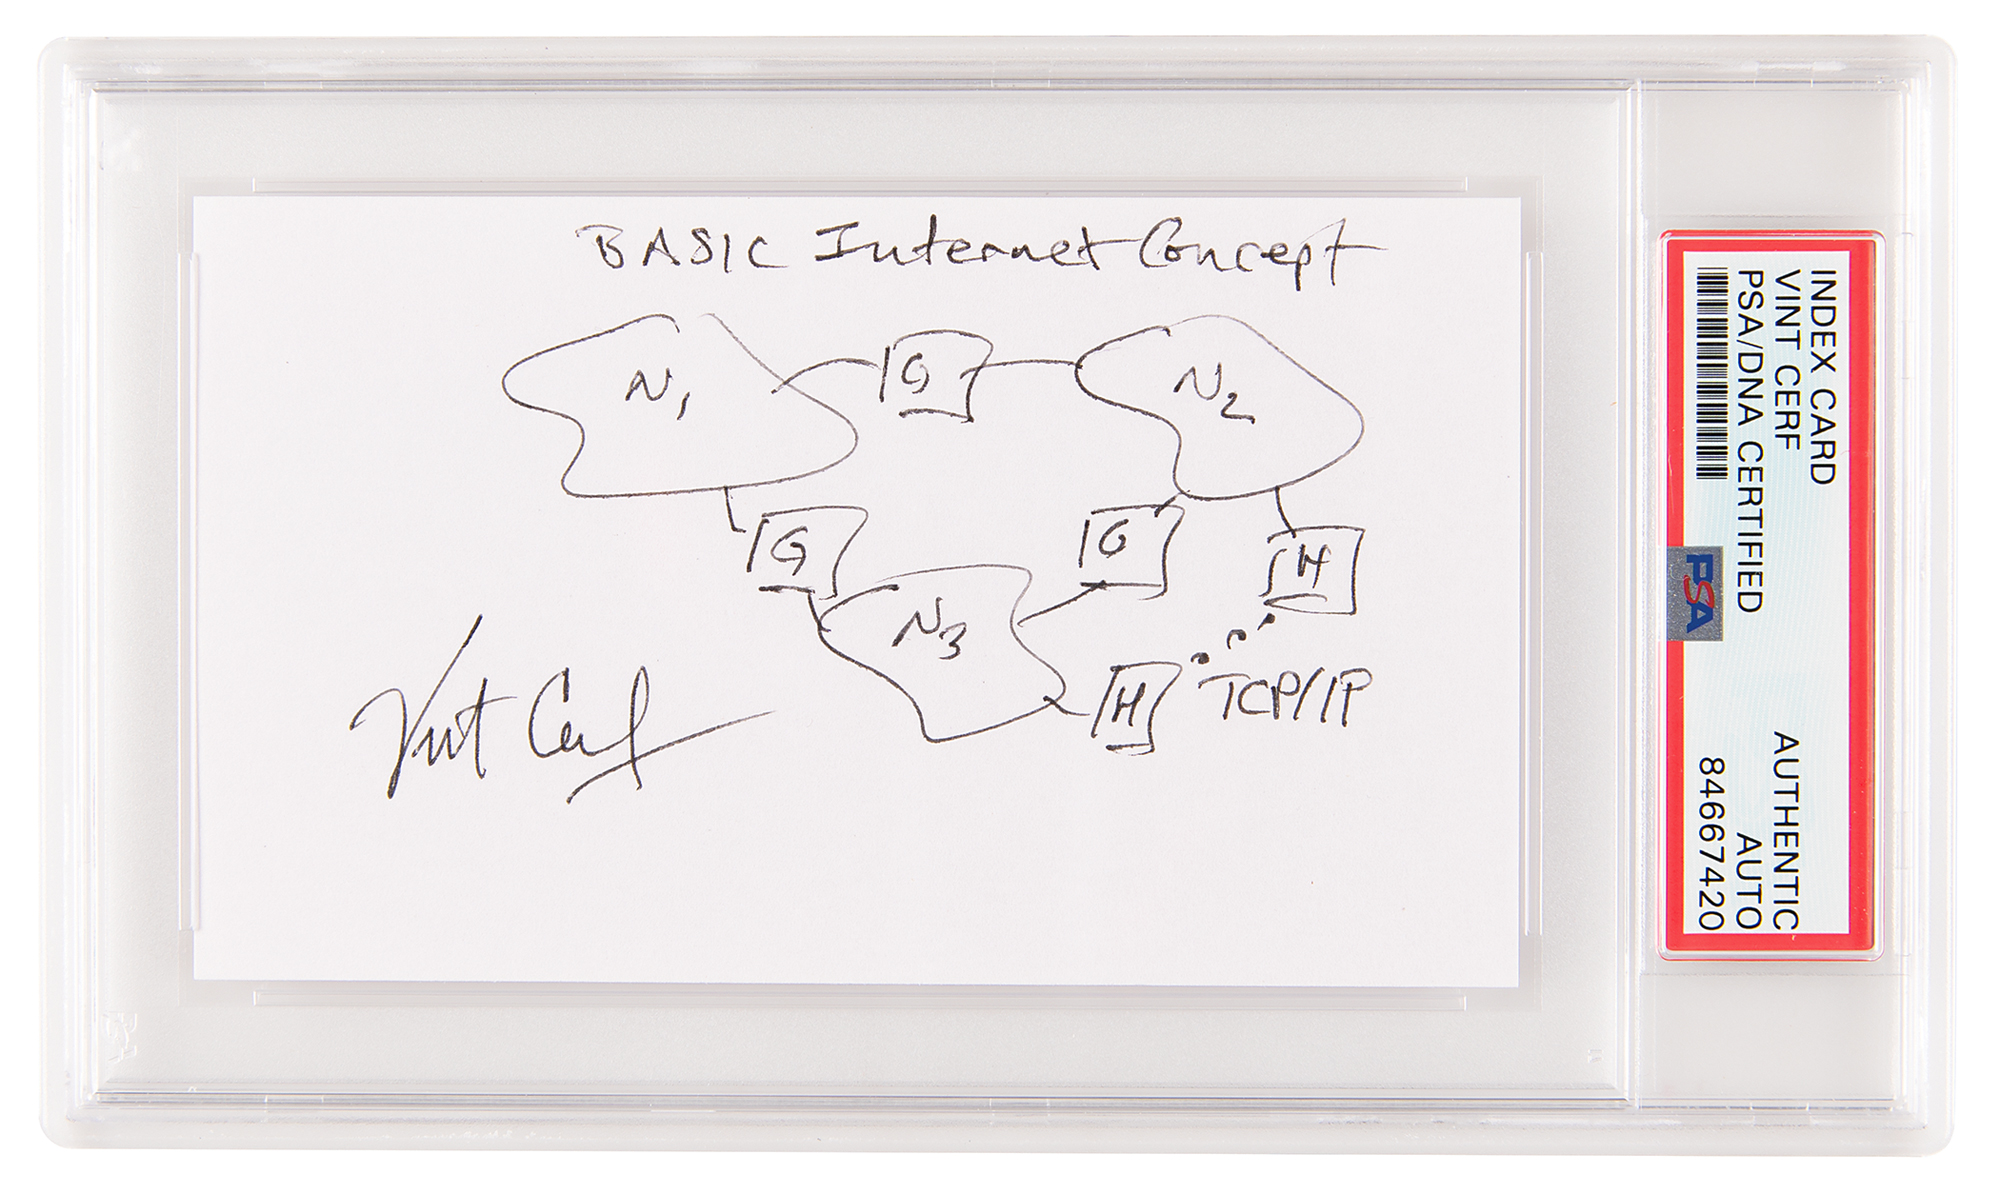 BASIC Internet Concept
N1
G
N2
G
G
H
N3
H
TCP/IP
Vint Cerf
INDEX CARD
VINT CERF
PSA/DNA CERTIFIED
AUTHENTIC
AUTO
84667420
PSA